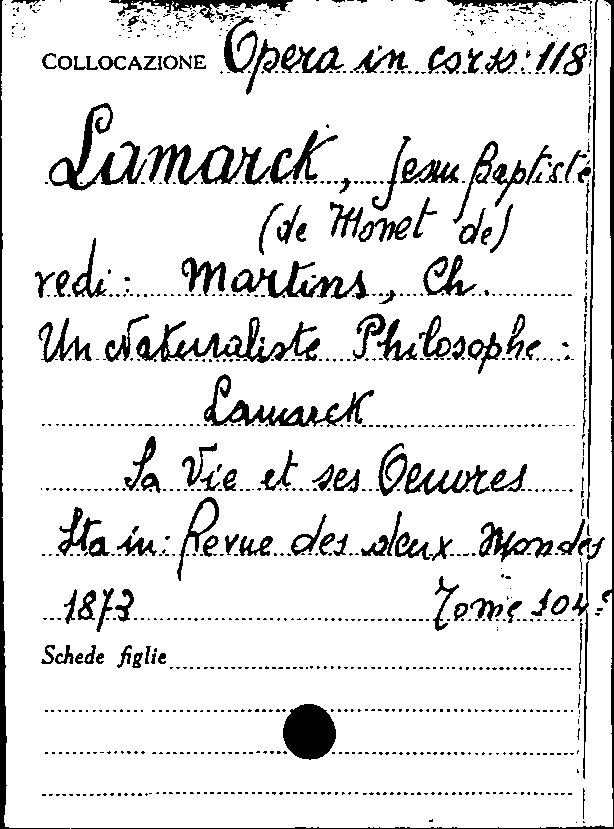 COLLOCAZIONE Opera in corso: 118
Lamarck, Jean Baptiste
(de Monet de)
vedi: Martins, Ch.
Un Naturaliste Philosophe:
Lamarck
Sa Vie et ses Oeuvres
Sta in: Revue des deux Mondes
1873 Tome 104º
Schede figlie